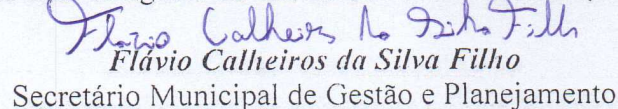 Flávio Calheiros da Silva Filho
Flávio Calheiros da Silva Filho
Secretário Municipal de Gestão e Planejamento